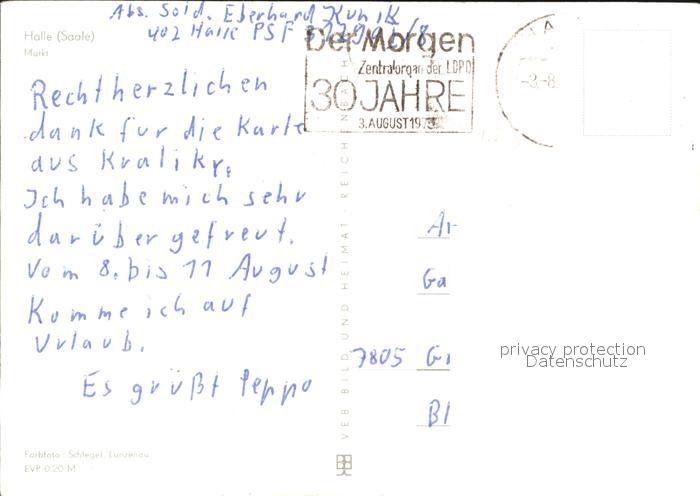 Abs. Sold. Eberhard Kunik
402 Halle PSF
Halle (Saale)
Markt
Der Morgen
Zentralorgan der LDPD
30 JAHRE
3. AUGUST 197
-3.-8
Rechtherzlichen
dank für die Karte
aus Kraliky.
Ich habe mich sehr
darüber gefreut.
Vom 8. bis 11 August
Komme ich auf
Urlaub.
Es grüßt Peppo
Ar
Ga
7805 Gr
Bl
privacy protection
Datenschutz
VEB BILD UND HEIMAT · REICHENBACH
Farbfoto: Schlegel, Lunzenau
EVP 0.20 M